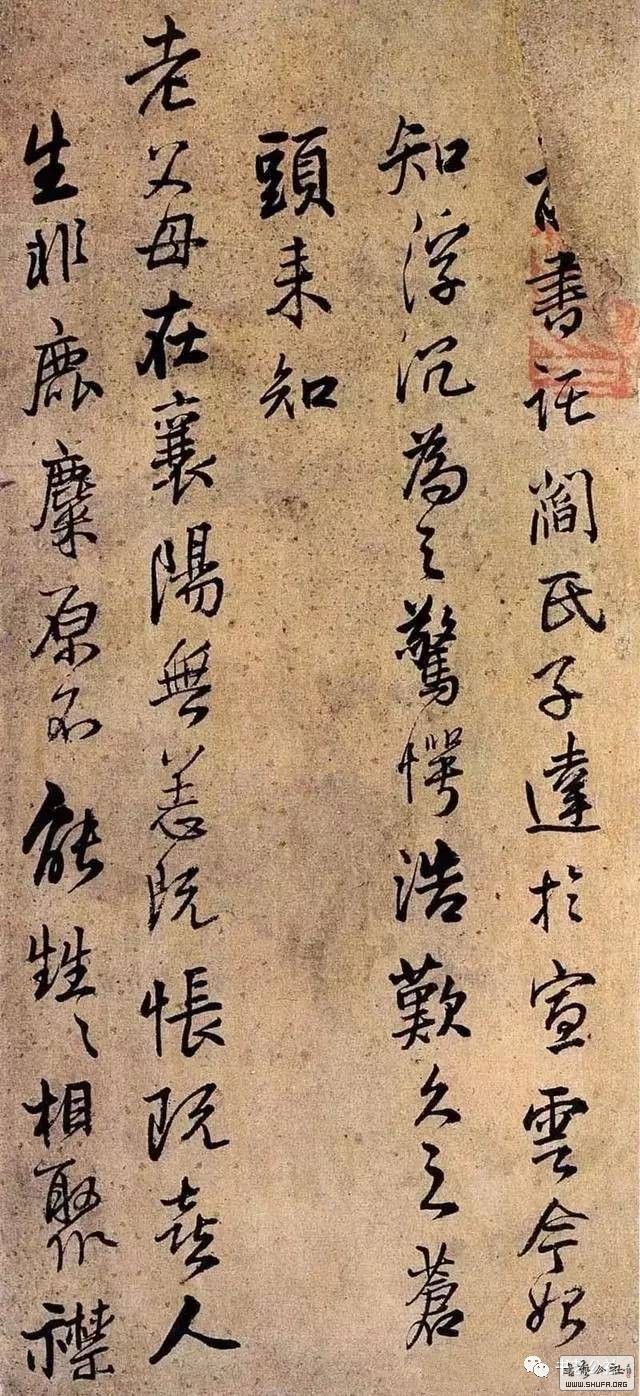 書託閻氏子達於宣雲今始
知浮沉為之驚愕浩歎久之蒼
頭来知
老父母在襄陽無恙既悵既喜人
生非鹿麋原不能甡々相聚襟
书艺公社
WWW.SHUFA.ORG